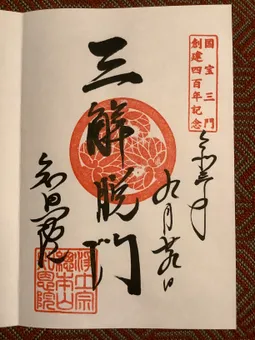 国宝三門
創建四百年記念
令和三年
九月日
三解脱門
知恩院
浄土宗
総本山
知恩院